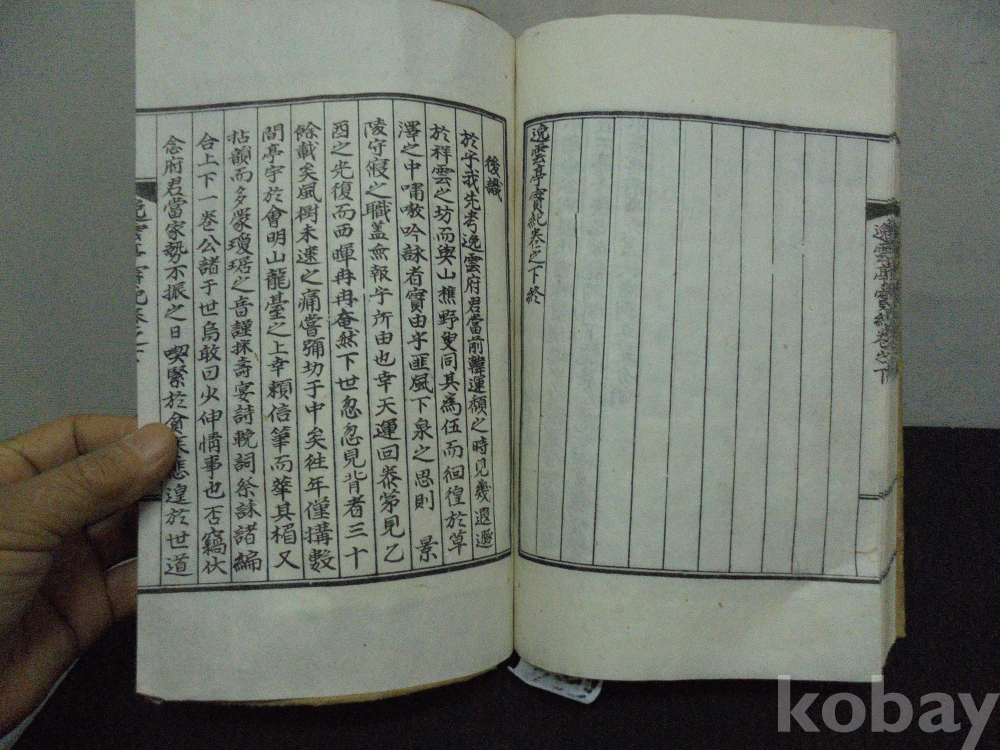 逸雲亭實紀卷之下
逸雲亭實紀卷之下終
後識
於乎我先考逸雲府君當前韓運頹之時見幾遐遯
於祥雲之坊而與山樵野叟同其爲伍而徊徨於草
澤之中嘯噭吟詠者實由乎匪風下泉之思則 景
陵守寢之職蓋無報乎所由也幸天運回泰第見乙
酉之光復而西暉冉冉奄然下世忽忽見背者三十
餘載矣風樹未逮之痛嘗彌切于中矣徃年僅搆數
間亭宇於會明山龍臺之上幸賴信筆而華其楣又
拈韻而多蒙瓊琚之音謹採壽宴詩輓詞祭誄諸編
合上下一卷公諸于世烏敢曰少伸情事也否竊伏
念府君當家勢不振之日喫緊於貧 遑於世道
kobay